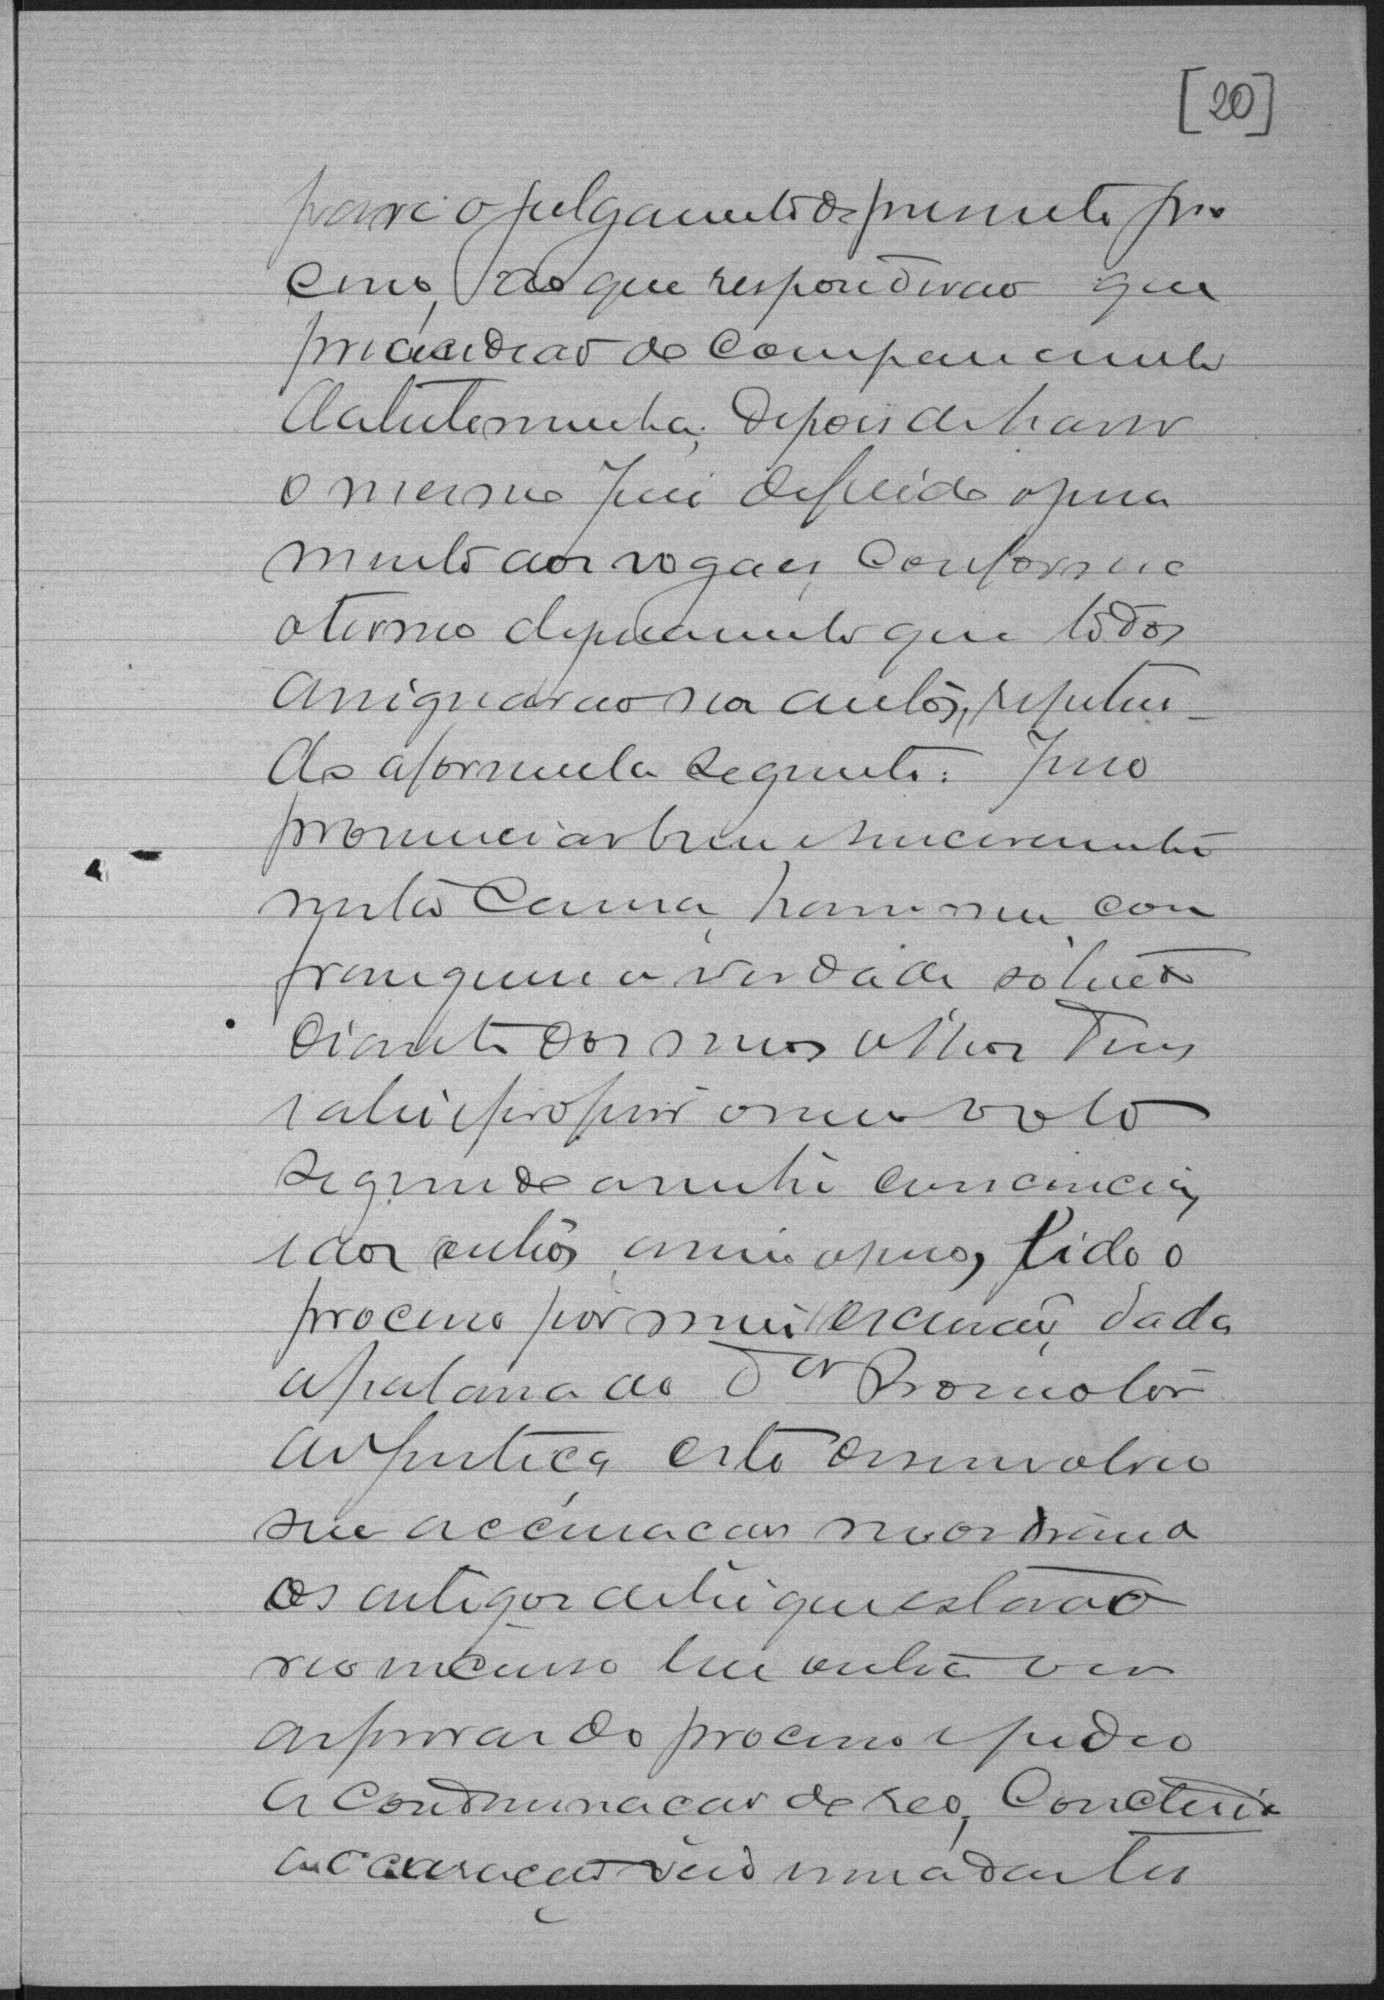 [20]
para o julgamento do presente pro
cesso, ao que responderão que
prescindião do comparecimento
da testemunha; depois de haver
o mesmo Juiz deferido o jura
mento aos vogaes, conforme
o termo de juramento que todos
assignarão nos autos, repetin-
do a formula seguinte: Juro
pronunciar bem e sinceramente
nesta causa, haver-me com
franqueza e verdade só tendo
diante dos meus olhos Deus
e a lei e proferir o meu voto
segundo a minha consciencia,
e dos autos, assim o juro, lido o
processo por mim escrivão, dada
a palavra ao Dor Promotor
da justiça, este desenvolveo
sua accusação mostrando
os artigos da lei que estavão
no incurso leu outra vez
as provas do processo e pedio
a condemnação do reo, Concluida
a accusação veio uma das tes